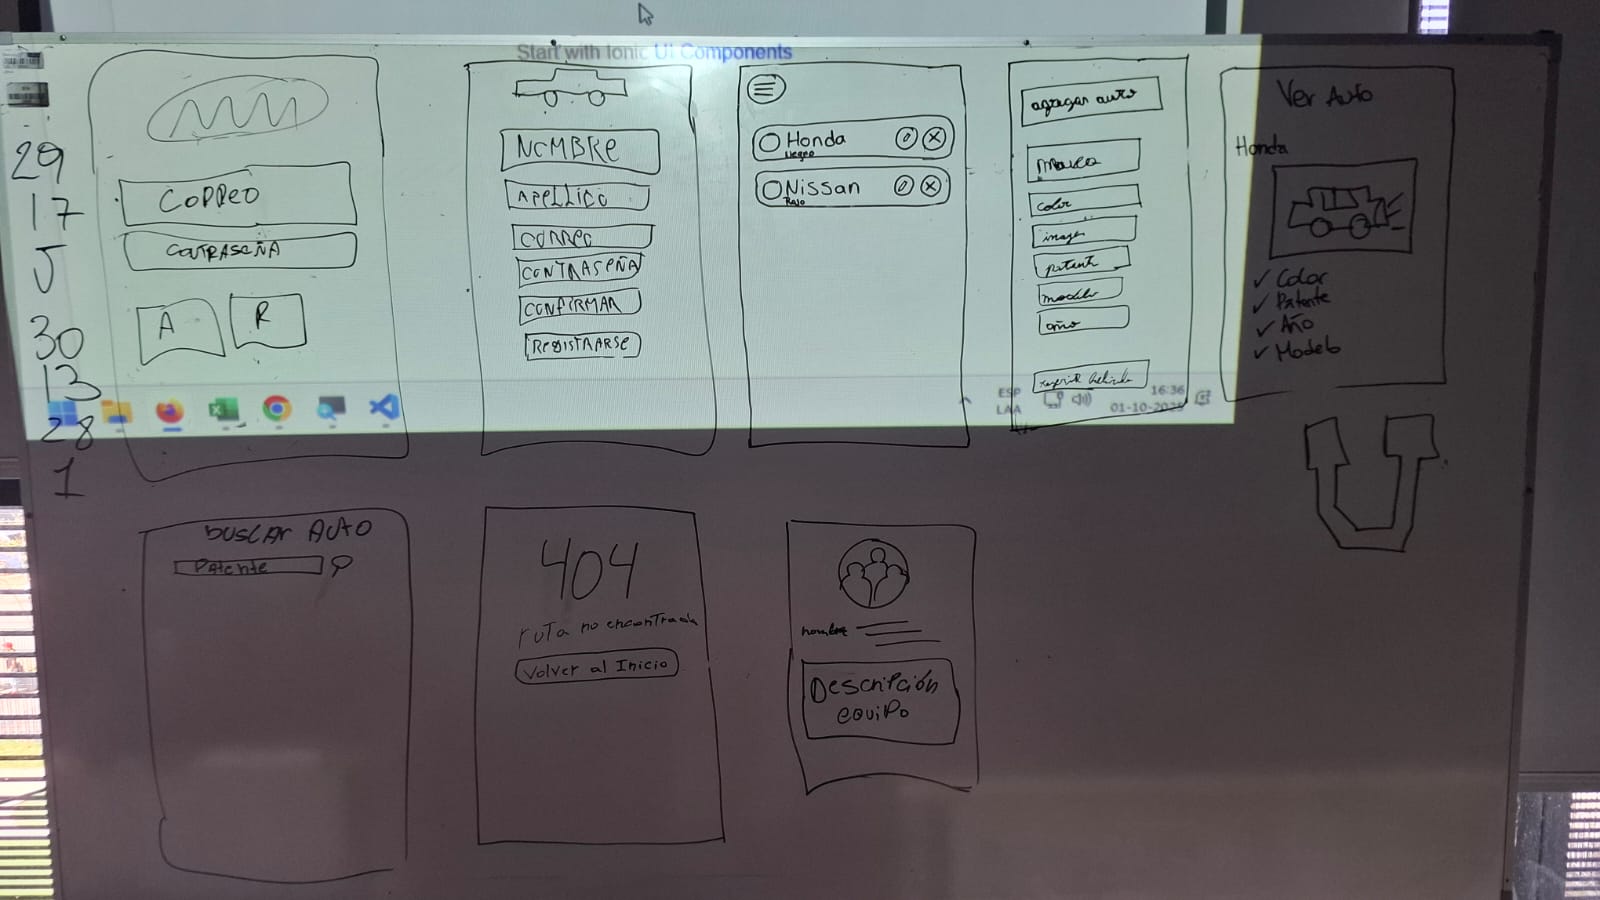 Start with Ionic UI Components
29
17
5
30
13
28
1
CORREO
CONTRASEÑA
A
R
NOMBRE
APELLIDO
CORREO
CONTRASEÑA
CONFIRMAR
REGISTRARSE
Honda
Negro
Nissan
Rojo
agregar auto
marca
color
imagen
patente
modelo
año
Ver Auto
Honda
✓ Color
✓ Patente
✓ Año
✓ Modelo
ESP
LAA
16:36
01-10-2025
buscar Auto
Patente
404
ruta no encontrada
Volver al Inicio
nombre
Descripción
equipo